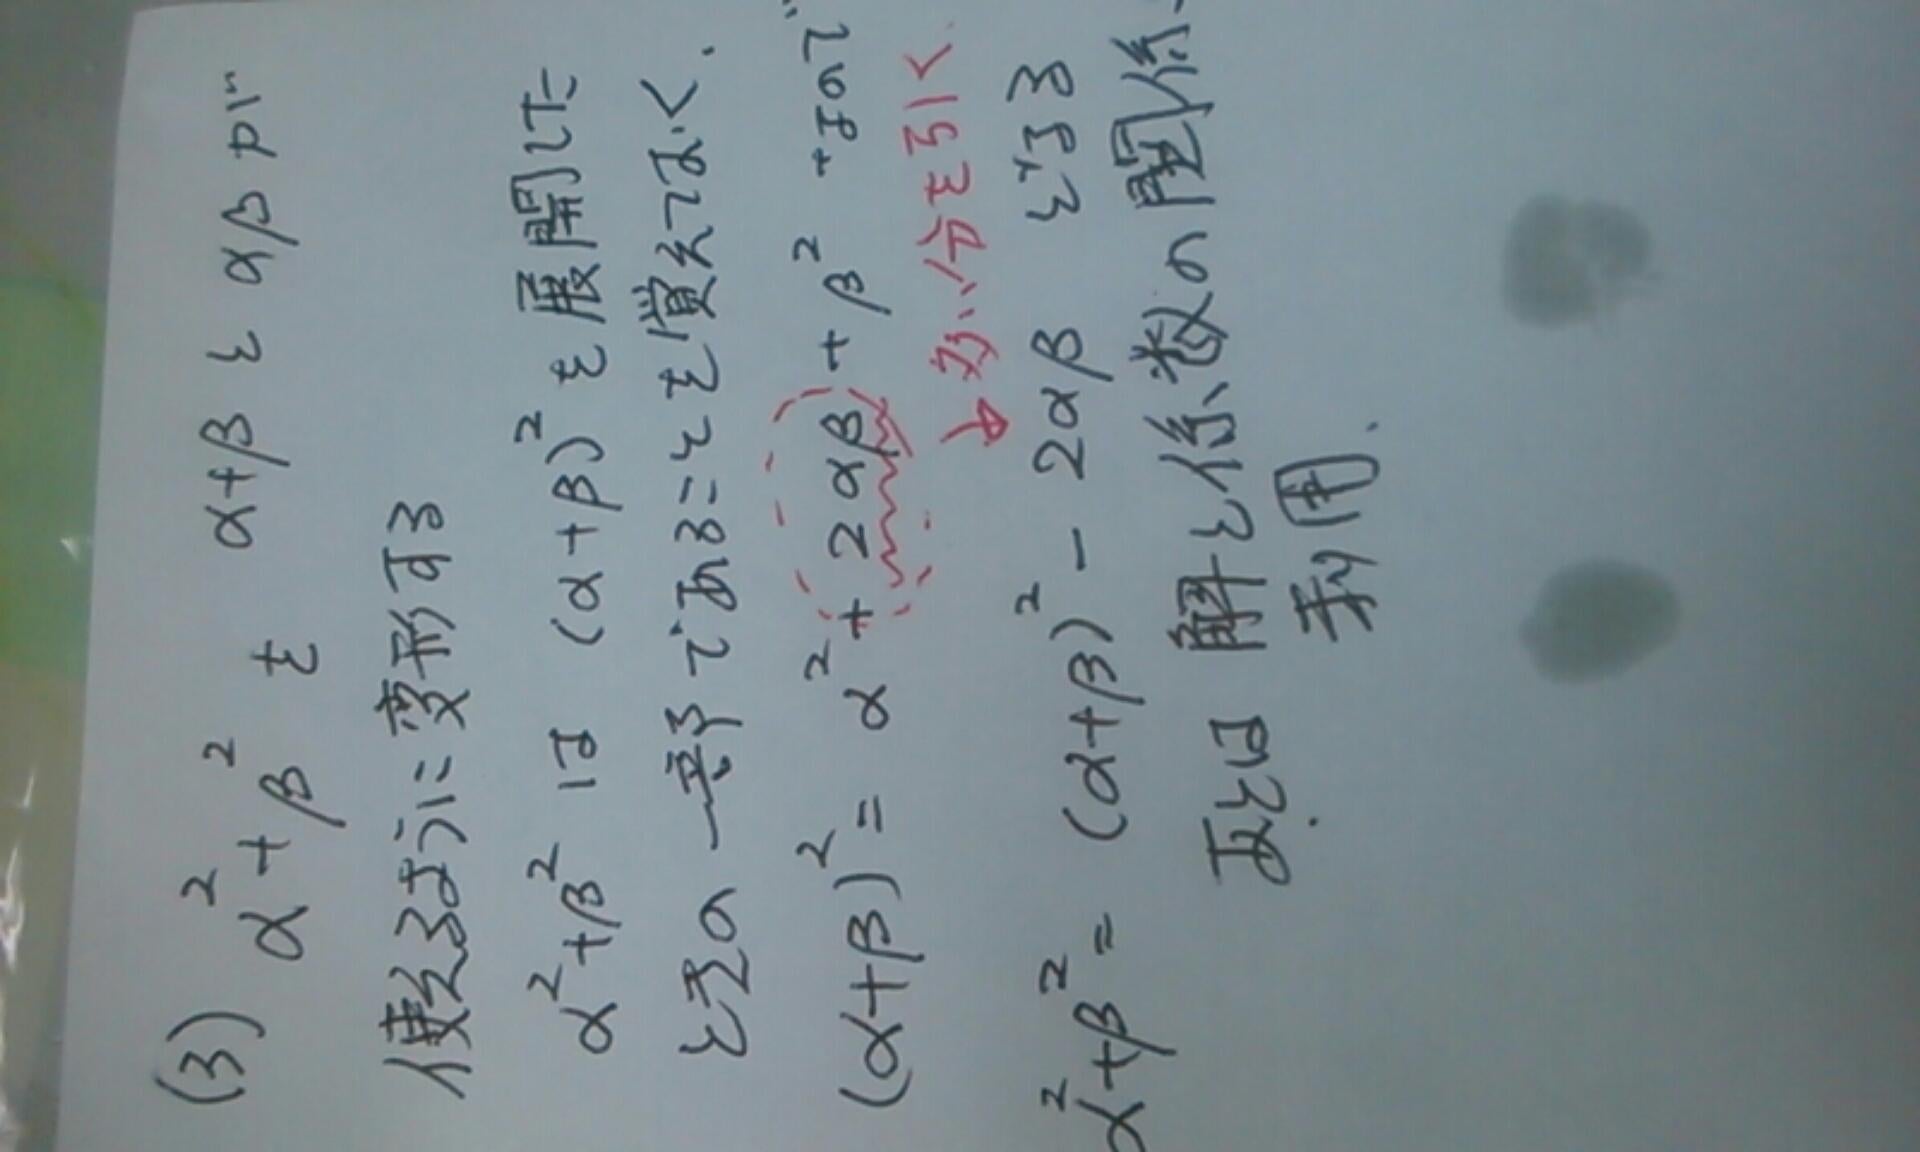 (3) α²+β² を α+β と αβ が
使えるように変形する
α²+β² は (α+β)² を展開した
ときの一部であることを覚えておく.
(α+β)² = α² + 2αβ + β² なので
→ 余分を引く
α²+β² = (α+β)² - 2αβ とする
あとは 解と係数の関係
利用.